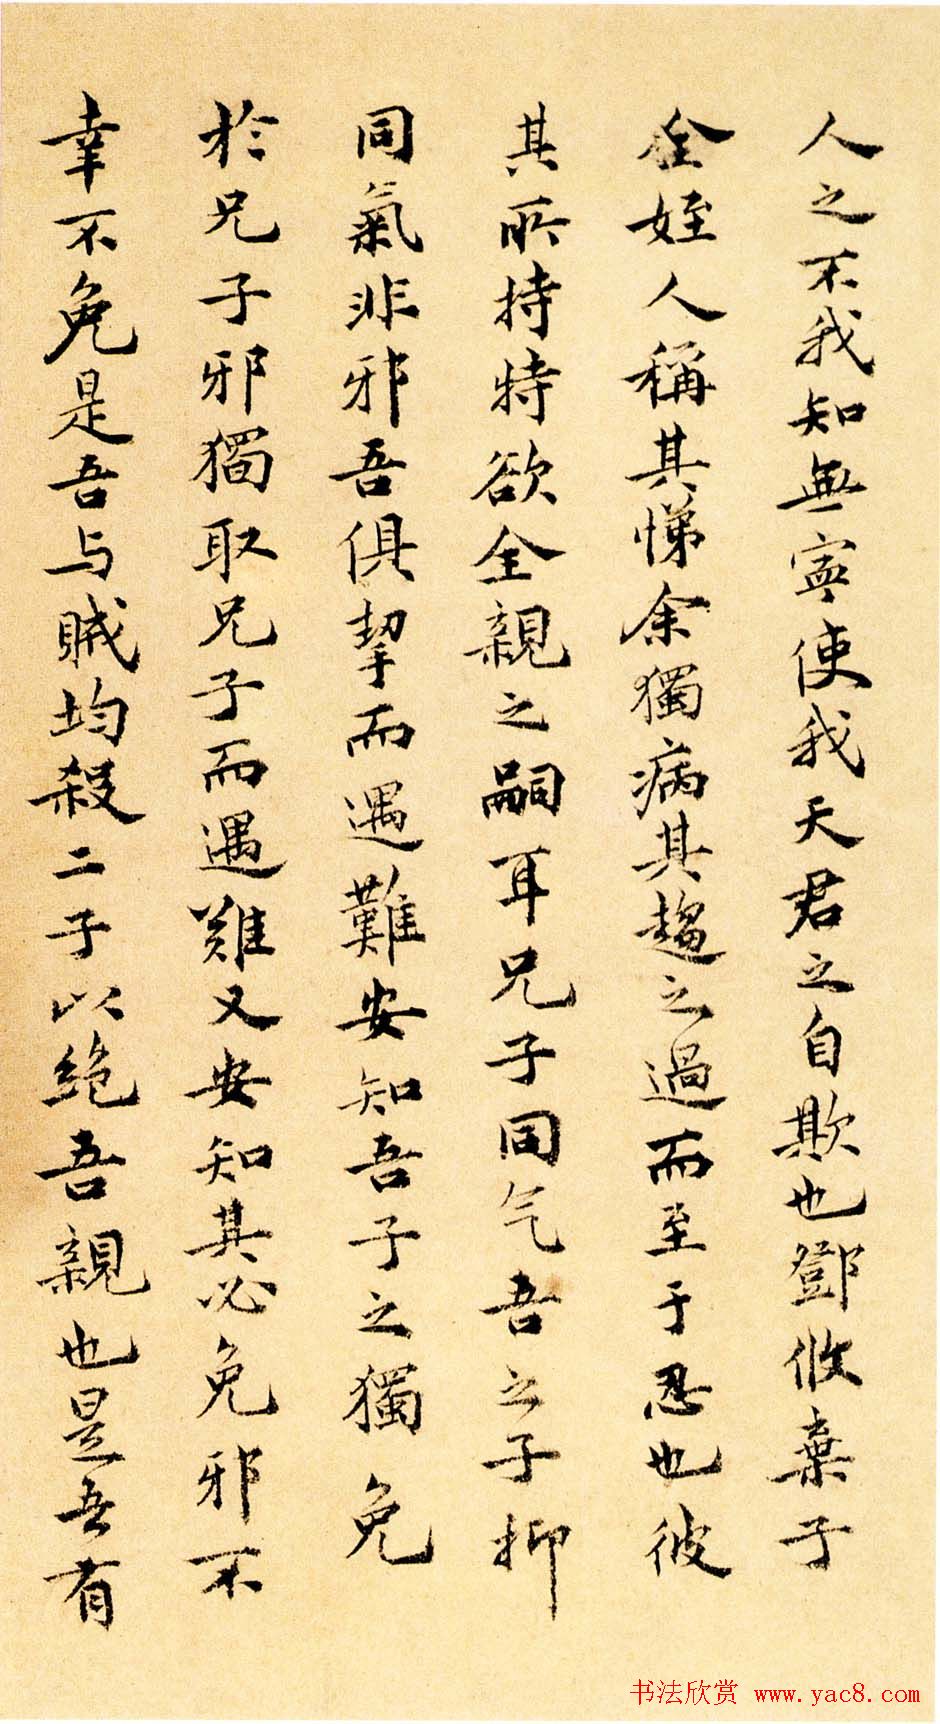 人之不我知無寧使我天君之自欺也鄧攸棄子
全姪人稱其悌余獨病其趨之過而至于忍也彼
其所持特欲全親之嗣耳兄子同气吾之子抑
同氣非邪吾俱挈而遇難安知吾子之獨免
於兄子邪獨取兄子而遇難又安知其必免邪不
幸不免是吾与賊均殺二子以絶吾親也是吾有
书法欣赏 www.yac8.com